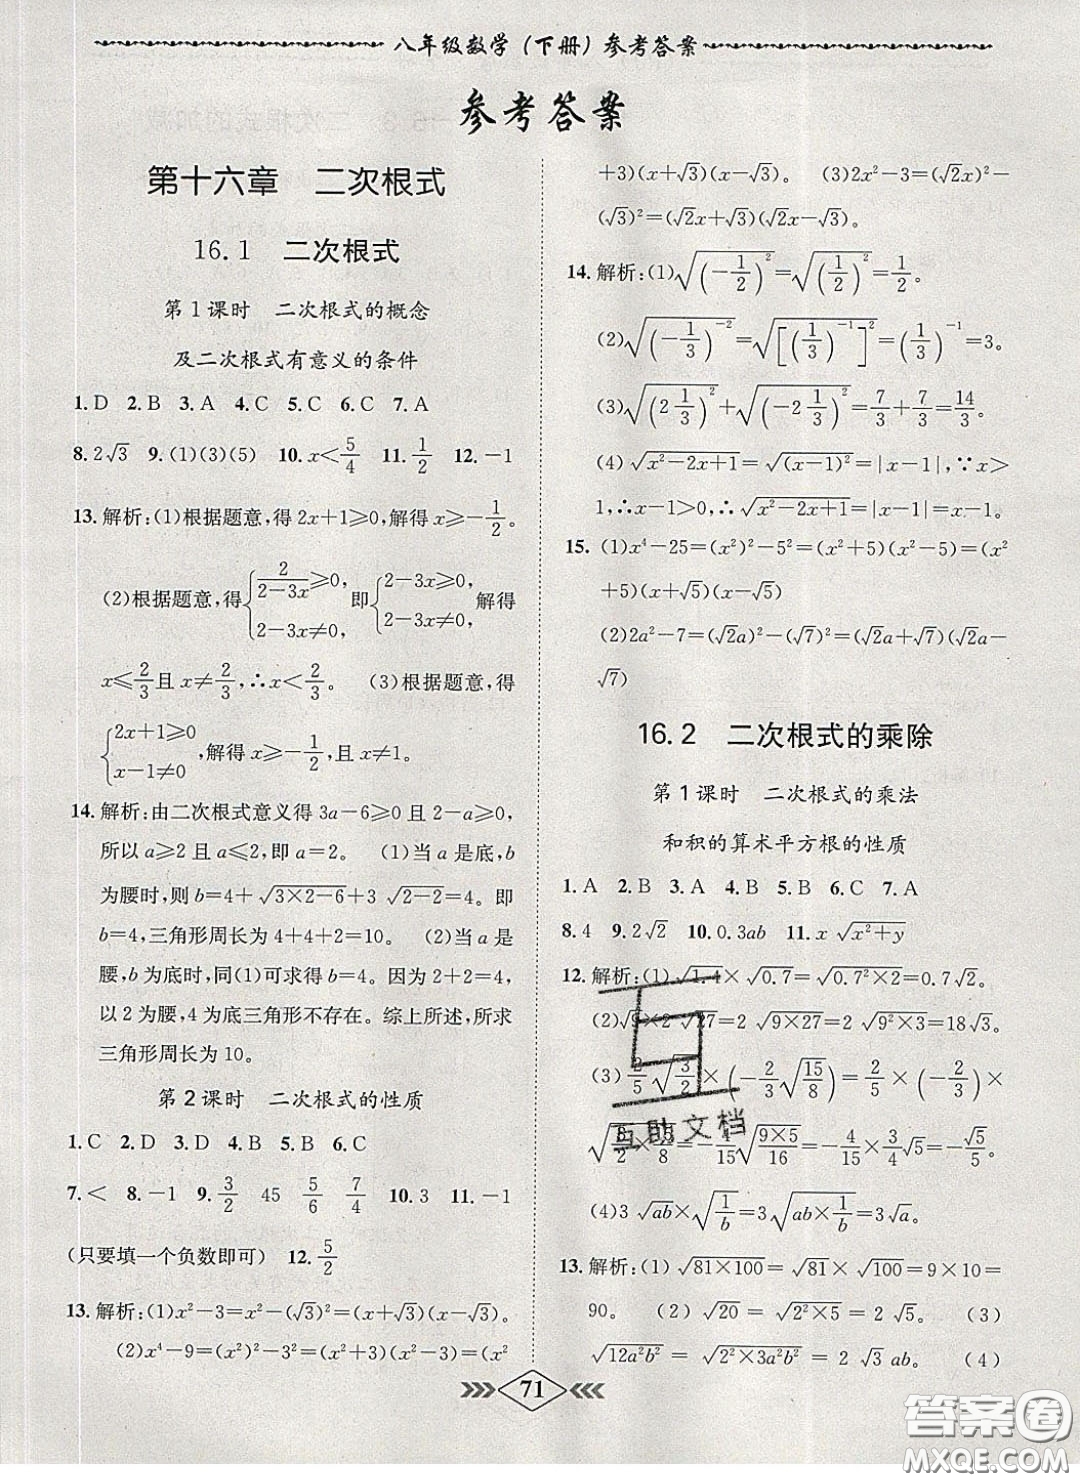 八年级数学(下册)参考答案
参考答案
第十六章 二次根式
16.1 二次根式
第1课时 二次根式的概念
及二次根式有意义的条件
1.D 2.B 3.A 4.C 5.C 6.C 7.A
8.2√3 9.(1)(3)(5) 10.x<5/4 11.1/2 12.-1
13.解析:(1)根据题意,得2x+1≥0,解得x≥-1/2。
(2)根据题意,得{2/(2-3x)≥0, 2-3x≠0 即{2-3x≥0, 2-3x≠0, 解得
x≤2/3且x≠2/3,∴x<2/3。 (3)根据题意,得
{2x+1≥0 x-1≠0,解得x≥-1/2,且x≠1。
14.解析:由二次根式意义得3a-6≥0且2-a≥0,
所以a≥2且a≤2,即a=2。 (1)当a是底,b
为腰时,则b=4+√(3×2-6)+3√(2-2)=4。即
b=4,三角形周长为4+4+2=10。 (2)当a是
腰,b为底时,同(1)可求得b=4。因为2+2=4,
以2为腰,4为底三角形不存在。综上所述,所求
三角形周长为10。
第2课时 二次根式的性质
1.C 2.D 3.D 4.B 5.B 6.C
7.< 8.-1 9.3/2 45 5/6 7/4 10.3 11.-1
(只要填一个负数即可) 12.5/2
13.解析:(1)x²-3=x²-(√3)²=(x+√3)(x-√3)。
(2)x⁴-9=(x²)²-3²=(x²+3)(x²-3)=(x²
+3)(x+√3)(x-√3)。 (3)2x²-3=(√2x)²-
(√3)²=(√2x+√3)(√2x-√3)。
14.解析:(1)√((-1/2)²)=√((1/2)²)=1/2。
(2)√((-1/3)⁻²)=√([(1/3)⁻¹]²)=(1/3)⁻¹=3。
(3)√((2 1/3)²)+√((-2 1/3)²)=7/3+7/3=14/3。
(4)√(x²-2x+1)=√((x-1)²)=|x-1|,∵x>
1,∴x-1>0,∴√(x²-2x+1)=|x-1|=x-1。
15.(1)x⁴-25=(x²)²-5²=(x²+5)(x²-5)=(x²
+5)(x+√5)(x-√5)
(2)2a²-7=(√2a)²-(√7)²=(√2a+√7)(√2a-
√7)
16.2 二次根式的乘除
第1课时 二次根式的乘法
和积的算术平方根的性质
1.A 2.B 3.A 4.B 5.B 6.C 7.A
8.4 9.2√2 10.0.3ab 11.x√(x²+y)
12.解析:(1)√1.4×√0.7=√(0.7²×2)=0.7√2。
(2)√9×2√27=2√(9×27)=2√(9²×3)=18√3。
(3)2/5√(3/2)×(-2/3√(15/8))=2/5×(-2/3)×
√(3/2×15/8)=-4/15√(9×5/16)=-4/15×3/4√5=-√5/5。
(4)3√ab×√(1/b)=3√(ab×1/b)=3√a。
13.解析:(1)√(81×100)=√81×√100=9×10=
90。 (2)√20=√(2²×5)=2√5。 (3)
√(12a²b²)=√(2²×3a²b²)=2√3ab。 (4)
71
互助文档
答案圈
MXQE.COM